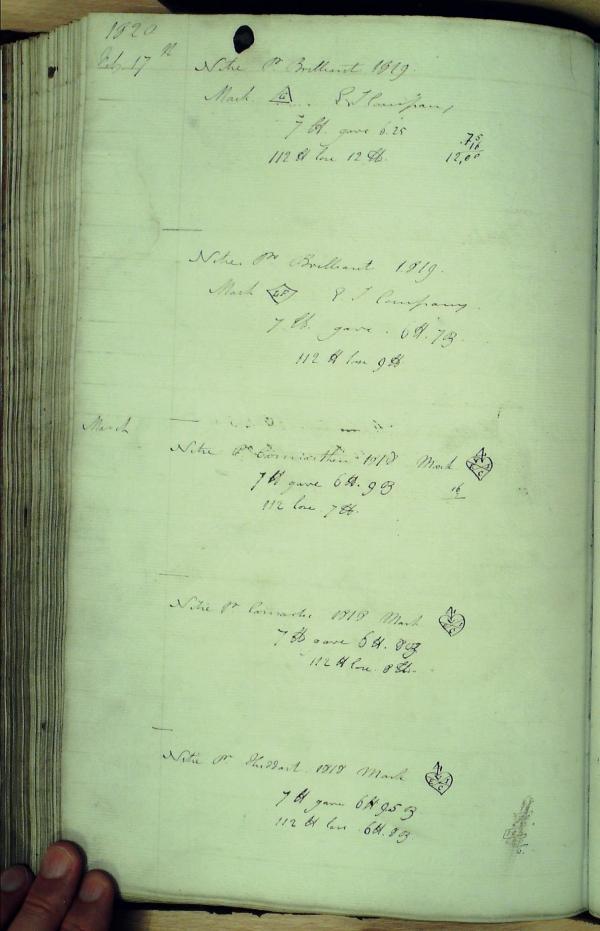 1820
Feb 17th Nitre Pr Brilliant 1819.
Mark E I Company
7 lb gave 6.25
112 lb lose 12 lb.
.75
16
12,00
Nitre Pr Brilliant 1819.
Mark E I Company.
7 lb. gave 6 lb. 7 oz.
112 lb lose 9 lb
March
Nitre Pr 1818 Mark
7 lb gave 6 lb. 9 oz
112 lose 7 lb.
16
Nitre Pr 1818 Mark
7 lb gave 6 lb. 8 oz
112 lb lose 8 lb.
Nitre Pr Huddart 1818 Mark
7 lb gave 6 lb 9.5 oz
112 lb lose 6 lb. 8 oz